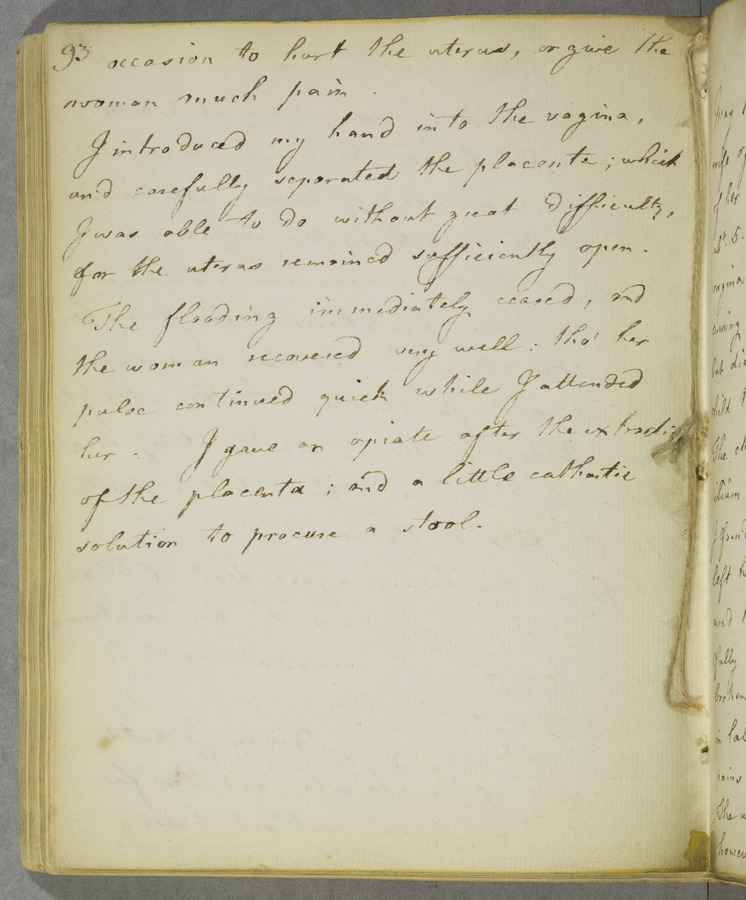 93 occasion to hurt the uterus, or give the
woman much pain.
I introduced my hand into the vagina,
and carefully separated the placenta; which
I was able to do without great difficulty,
for the uterus remained sufficiently open.
The flooding immediately ceased, and
the woman recovered very well: tho' her
pulse continued quick while I attended
her. I gave an opiate after the extraction
of the placenta; and a little cathartic
solution to procure a stool.